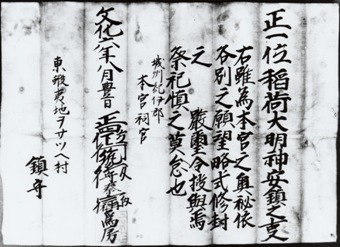 正一位稲荷大明神安鎮之事
右雖為本宮之奥秘依
各別之願望略式修封
之 厳璽令授与焉
祭祀慎之莫怠也
城州紀伊郡
本宮祠官
文化六年八月 正
東蝦夷地ヲサツヘ村
鎮守